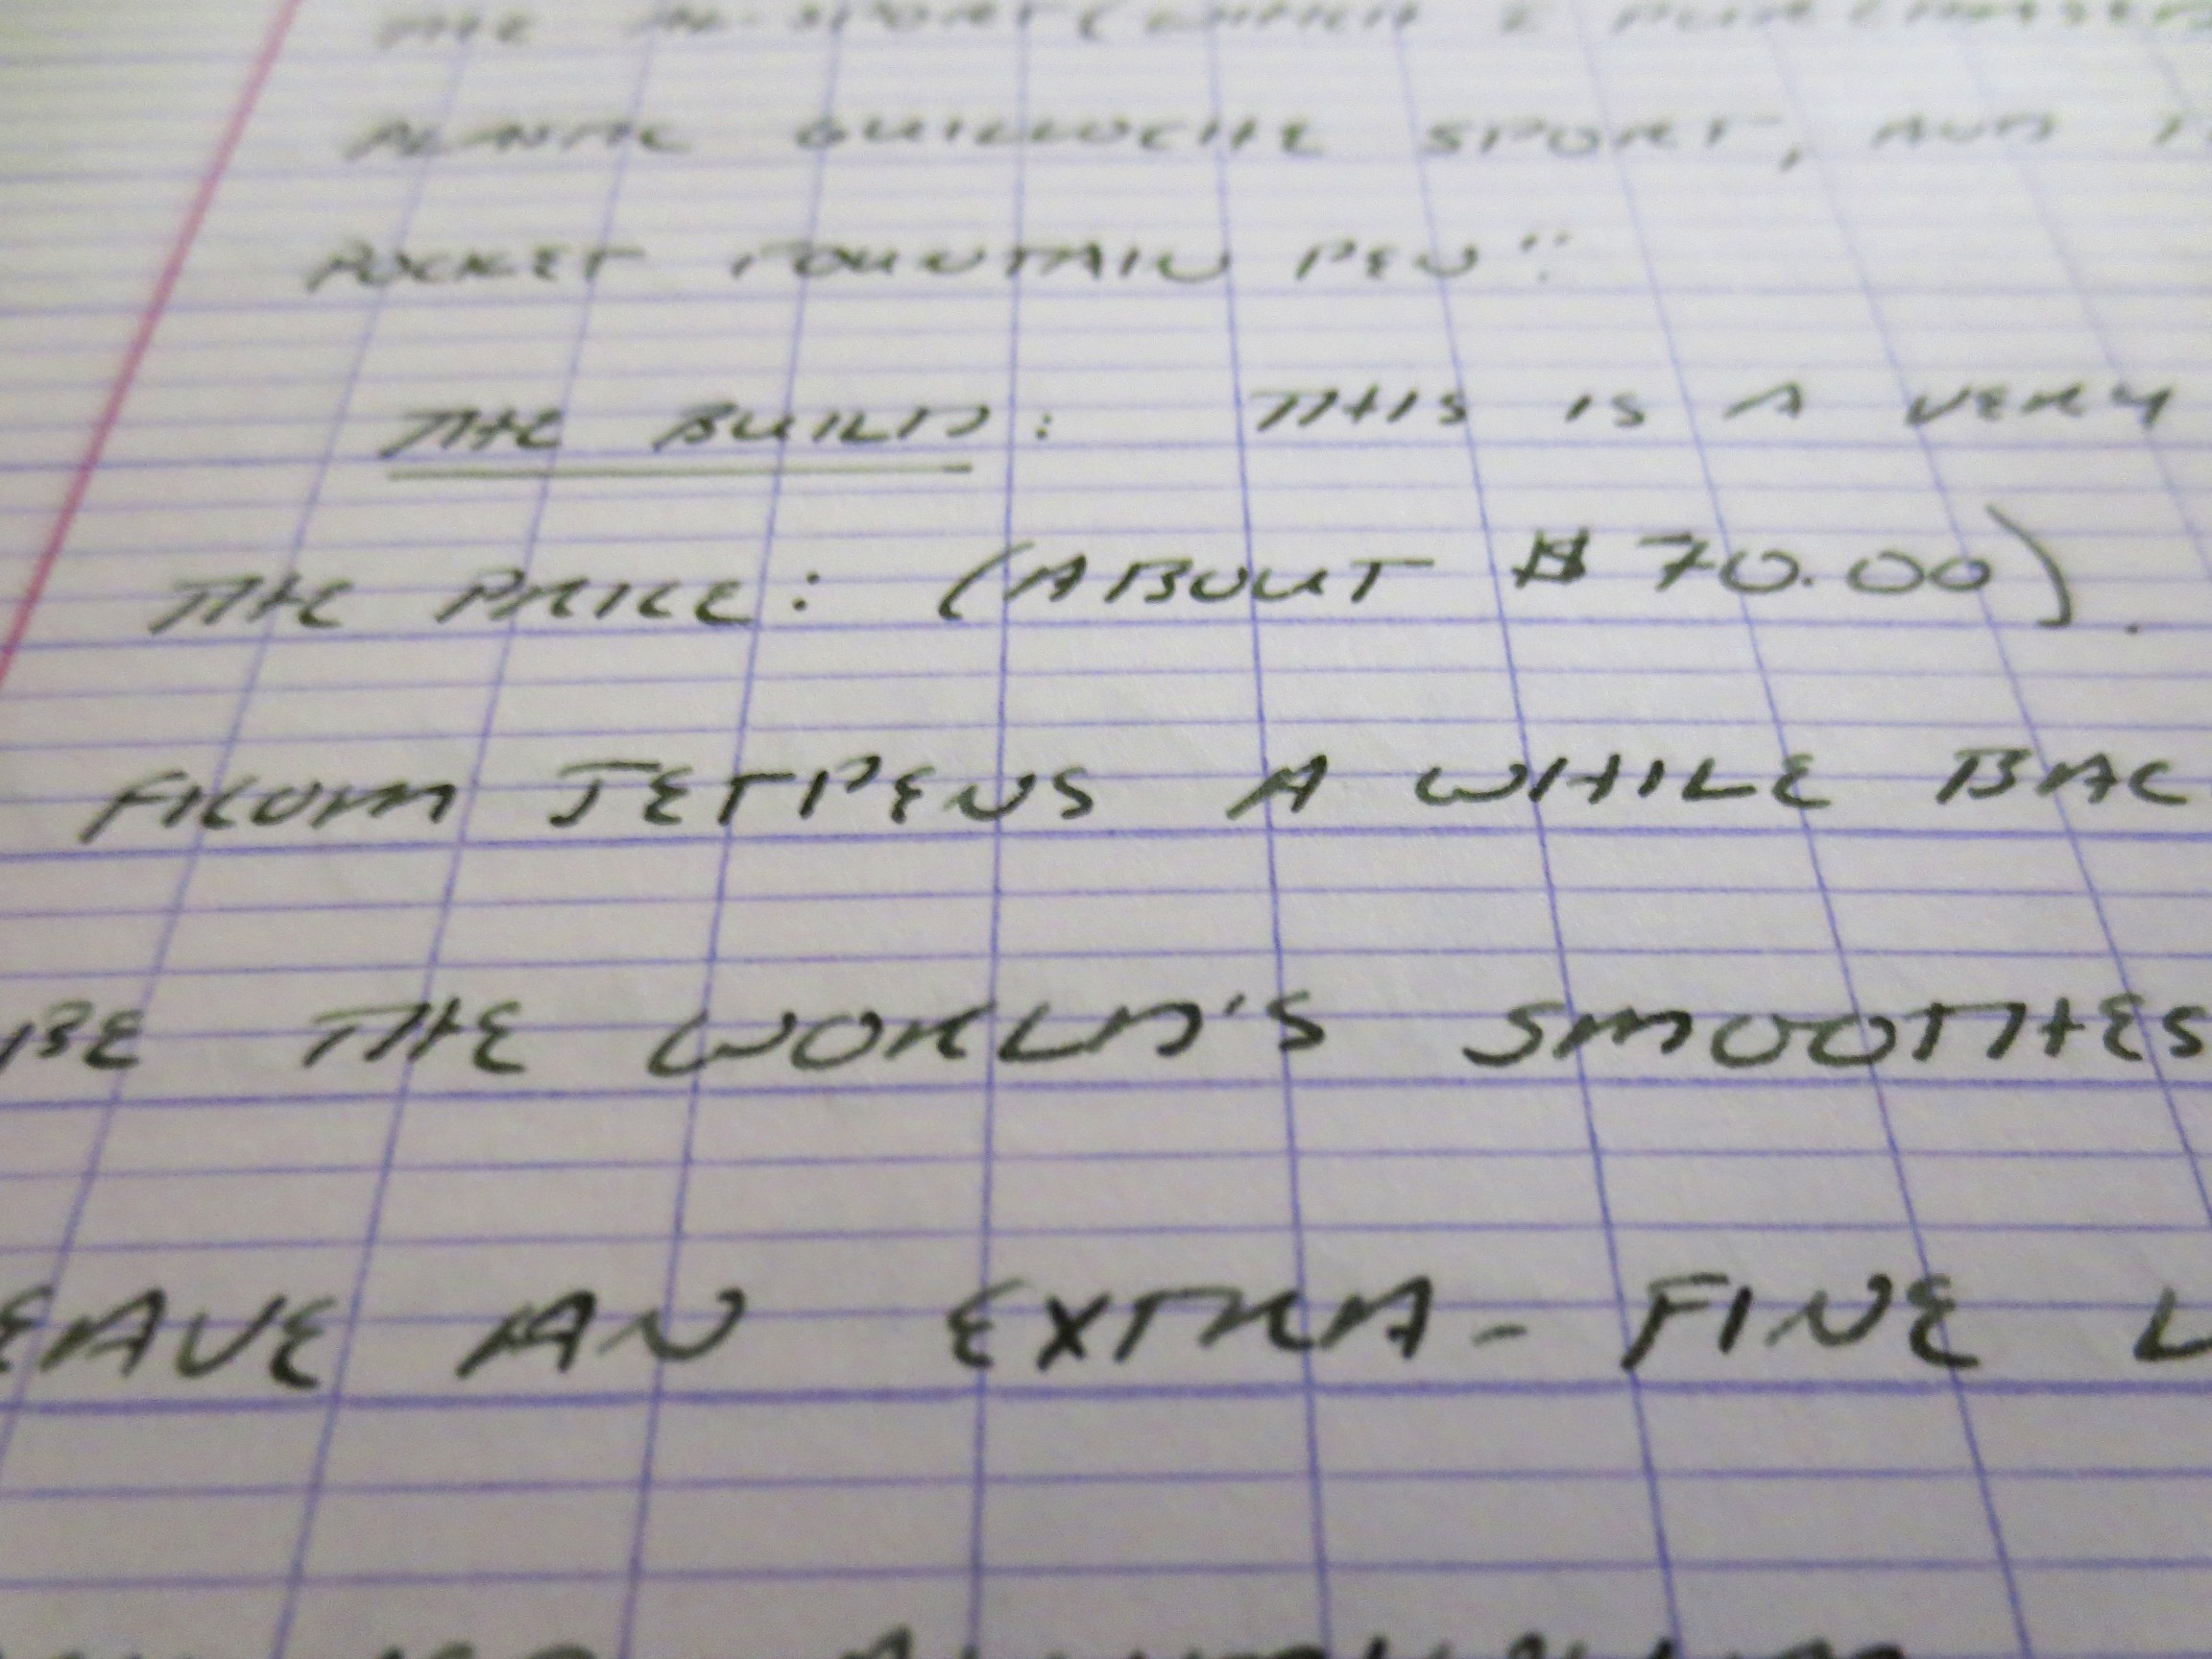 THE AL-SPORT (WHICH I PURCHASED
PLASTIC GUILLOCHE SPORT, AND
POCKET FOUNTAIN PEN".
THE BUILD: THIS IS A VERY
THE PRICE: (ABOUT $70.00).
FROM JETPENS A WHILE BAC
BE THE WORLD'S SMOOTHES
EAVE AN EXTRA-FINE L